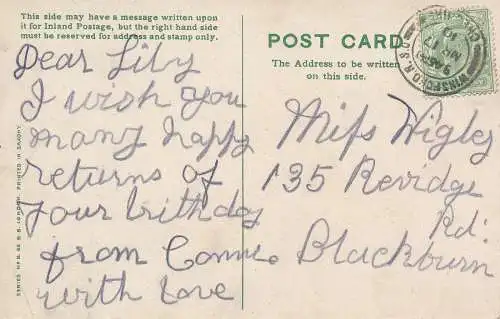 This side may have a message written upon
it for Inland Postage, but the right hand side
must be reserved for address and stamp only.
Dear Lily
I wish you
many happy
returns of
your birthday
from Connie
with love
POST CARD
The Address to be written
on this side.
Miss Wigley
135 Revidge
Rd.
Blackburn
PRINTED IN SAXONY
LONDON